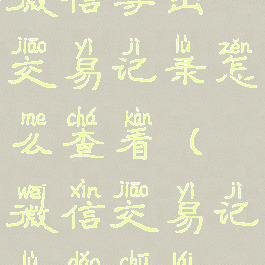 微信导出
jiāo yì jì lù zěn
交易记录怎
me chá kàn
么查看（
wēi xìn jiāo yì jì
微信交易记
lù dǎo chū lái